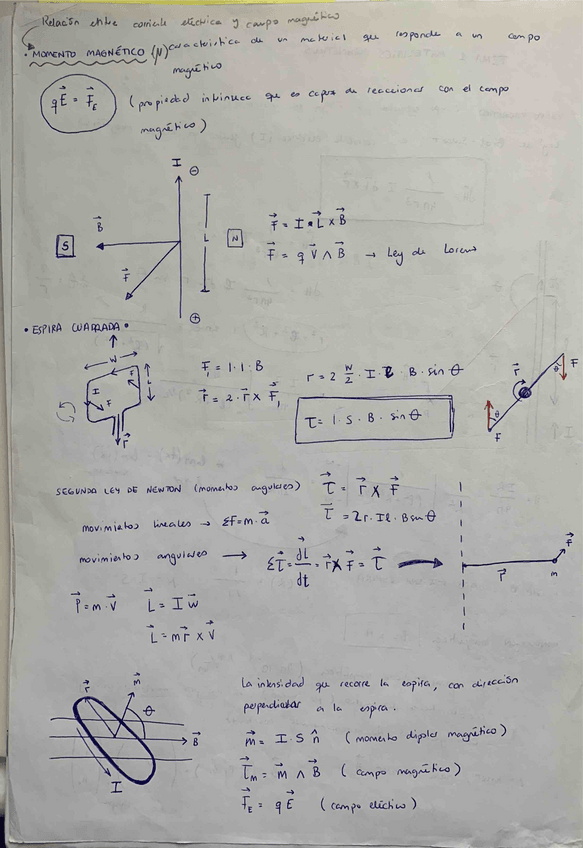 Relación entre corriente eléctrica y campo magnético
• MOMENTO MAGNÉTICO (N) característica de un material que responde a un campo
magnético
qE⃗ = F⃗_E (propiedad intrínseca que es capaz de reaccionar con el campo
magnético)
I ⊖
B⃗
S
L
N
F⃗
⊕
F⃗ = I • L⃗ x B⃗
F⃗ = q V⃗ ∧ B⃗ → Ley de Lorenz
• ESPIRA CUADRADA •
W
I
F
F
L
r⃗
F₁ = 1 · 1 · B
r⃗ = 2 · r⃗ x F⃗₁
r = 2 W/2 · I · l · B · sin θ
τ = 1 · S · B · sin θ
F
θ
r⃗
θ
F
SEGUNDA LEY DE NEWTON (momentos angulares)
τ⃗ = r⃗ x F⃗
τ⃗ = 2r · Il · B sin θ
movimientos lineales → Σf = m · a⃗
movimientos angulares → Στ⃗ = dL⃗/dt = r⃗ x F⃗ = τ⃗
r⃗
F⃗
m
P⃗ = m · v⃗ L⃗ = I w⃗
L⃗ = m r⃗ x v⃗
r⃗
m⃗
θ
B⃗
I
La intensidad que recorre la espira, con dirección
perpendicular a la espira.
m⃗ = I · S n̂ (momento dipolar magnético)
τ⃗_M = m⃗ ∧ B⃗ (campo magnético)
F⃗_E = q E⃗ (campo eléctrico)